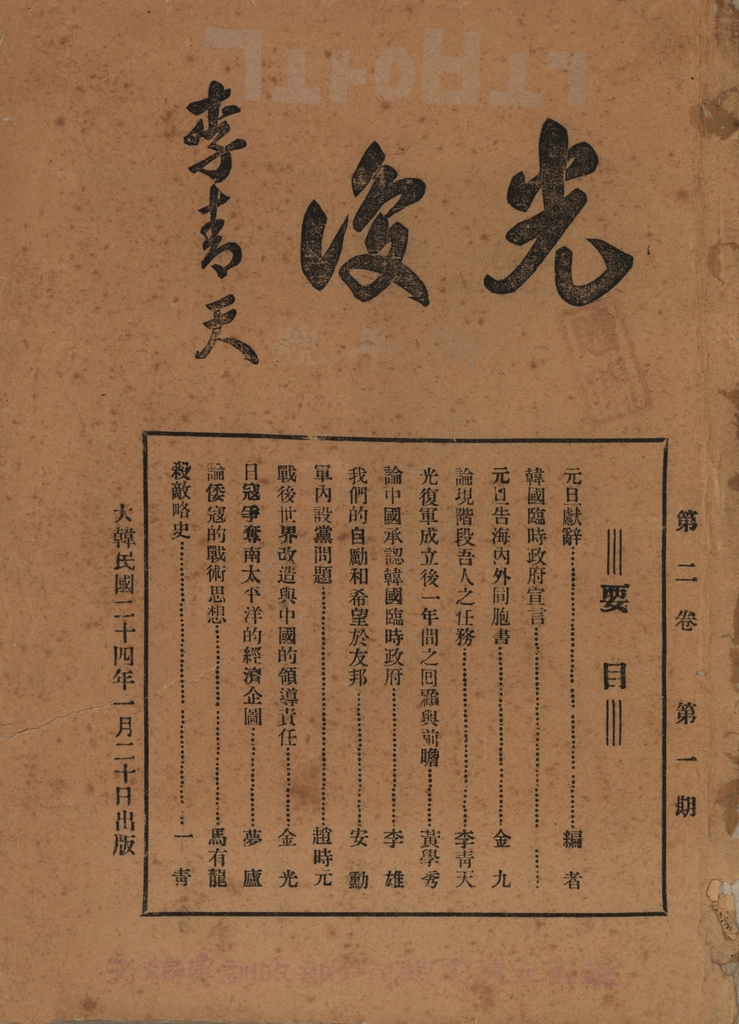 光復
李青天
第二卷　第一期
要目
元旦獻辭………編者
韓國臨時政府宣言………
元旦告海內外同胞書………金九
論現階段吾人之任務………李青天
光復軍成立後一年間之回顧與前瞻………黃學秀
論中國承認韓國臨時政府………李雄
我們的自勵和希望於友邦………安勳
軍內設黨問題………趙時元
戰後世界改造與中國的領導責任………金光
日寇爭奪南太平洋的經濟企圖………夢廬
論倭寇的戰術思想………馬有龍
殺敵略史………一青
大韓民國二十四年一月二十日出版